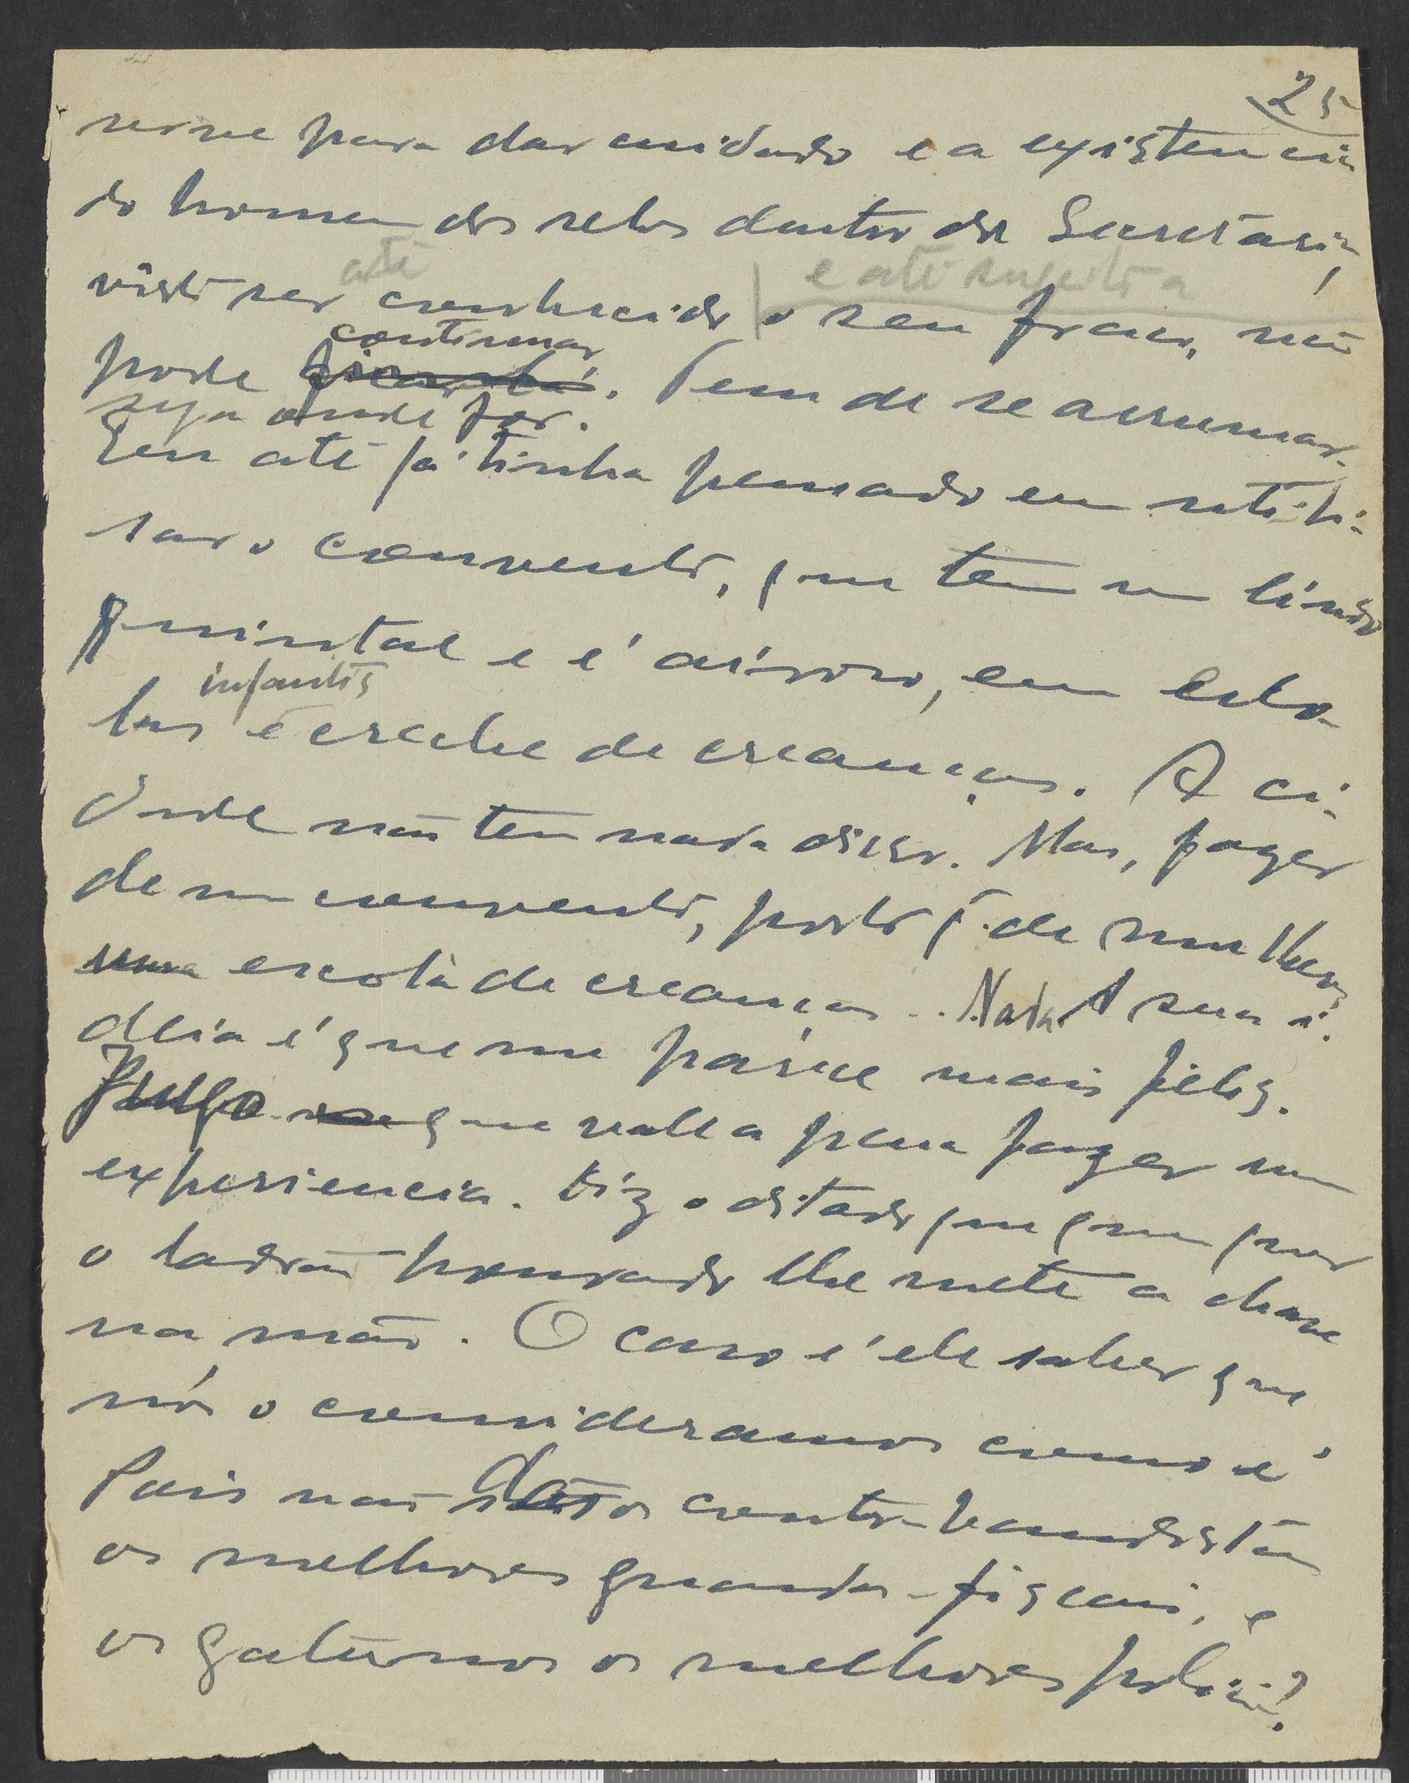 25
serve para dar cuidado e a existencia
do homem dos selos dentro da Secretaria,
até e até sugeita a
visto ser conhecido o seu fraco, não
continuar
pode ficar lá. Tem de se arrumar
seja onde for.
Eu até já tinha pensado em utili-
sar o convento, que tem um lindo
quintal e é airoso, em esco-
infantis
las e creche de creanças. A ci-
dade não tem nada disso. Mas, fazer
de um convento, posto q. de mulheres
uma escola de creanças... Nada. A sua i-
deia é que me parece mais feliz.
Julgo que valle a pena fazer um
experiencia. Diz o ditado que quem quer
o ladrão honrado lhe mete a chave
na mão. O caso é ele saber que
nós o consideramos como é
Pois não dão os contrabandistas
os melhores guarda-fiscais, e
os gatunos os melhores policias?